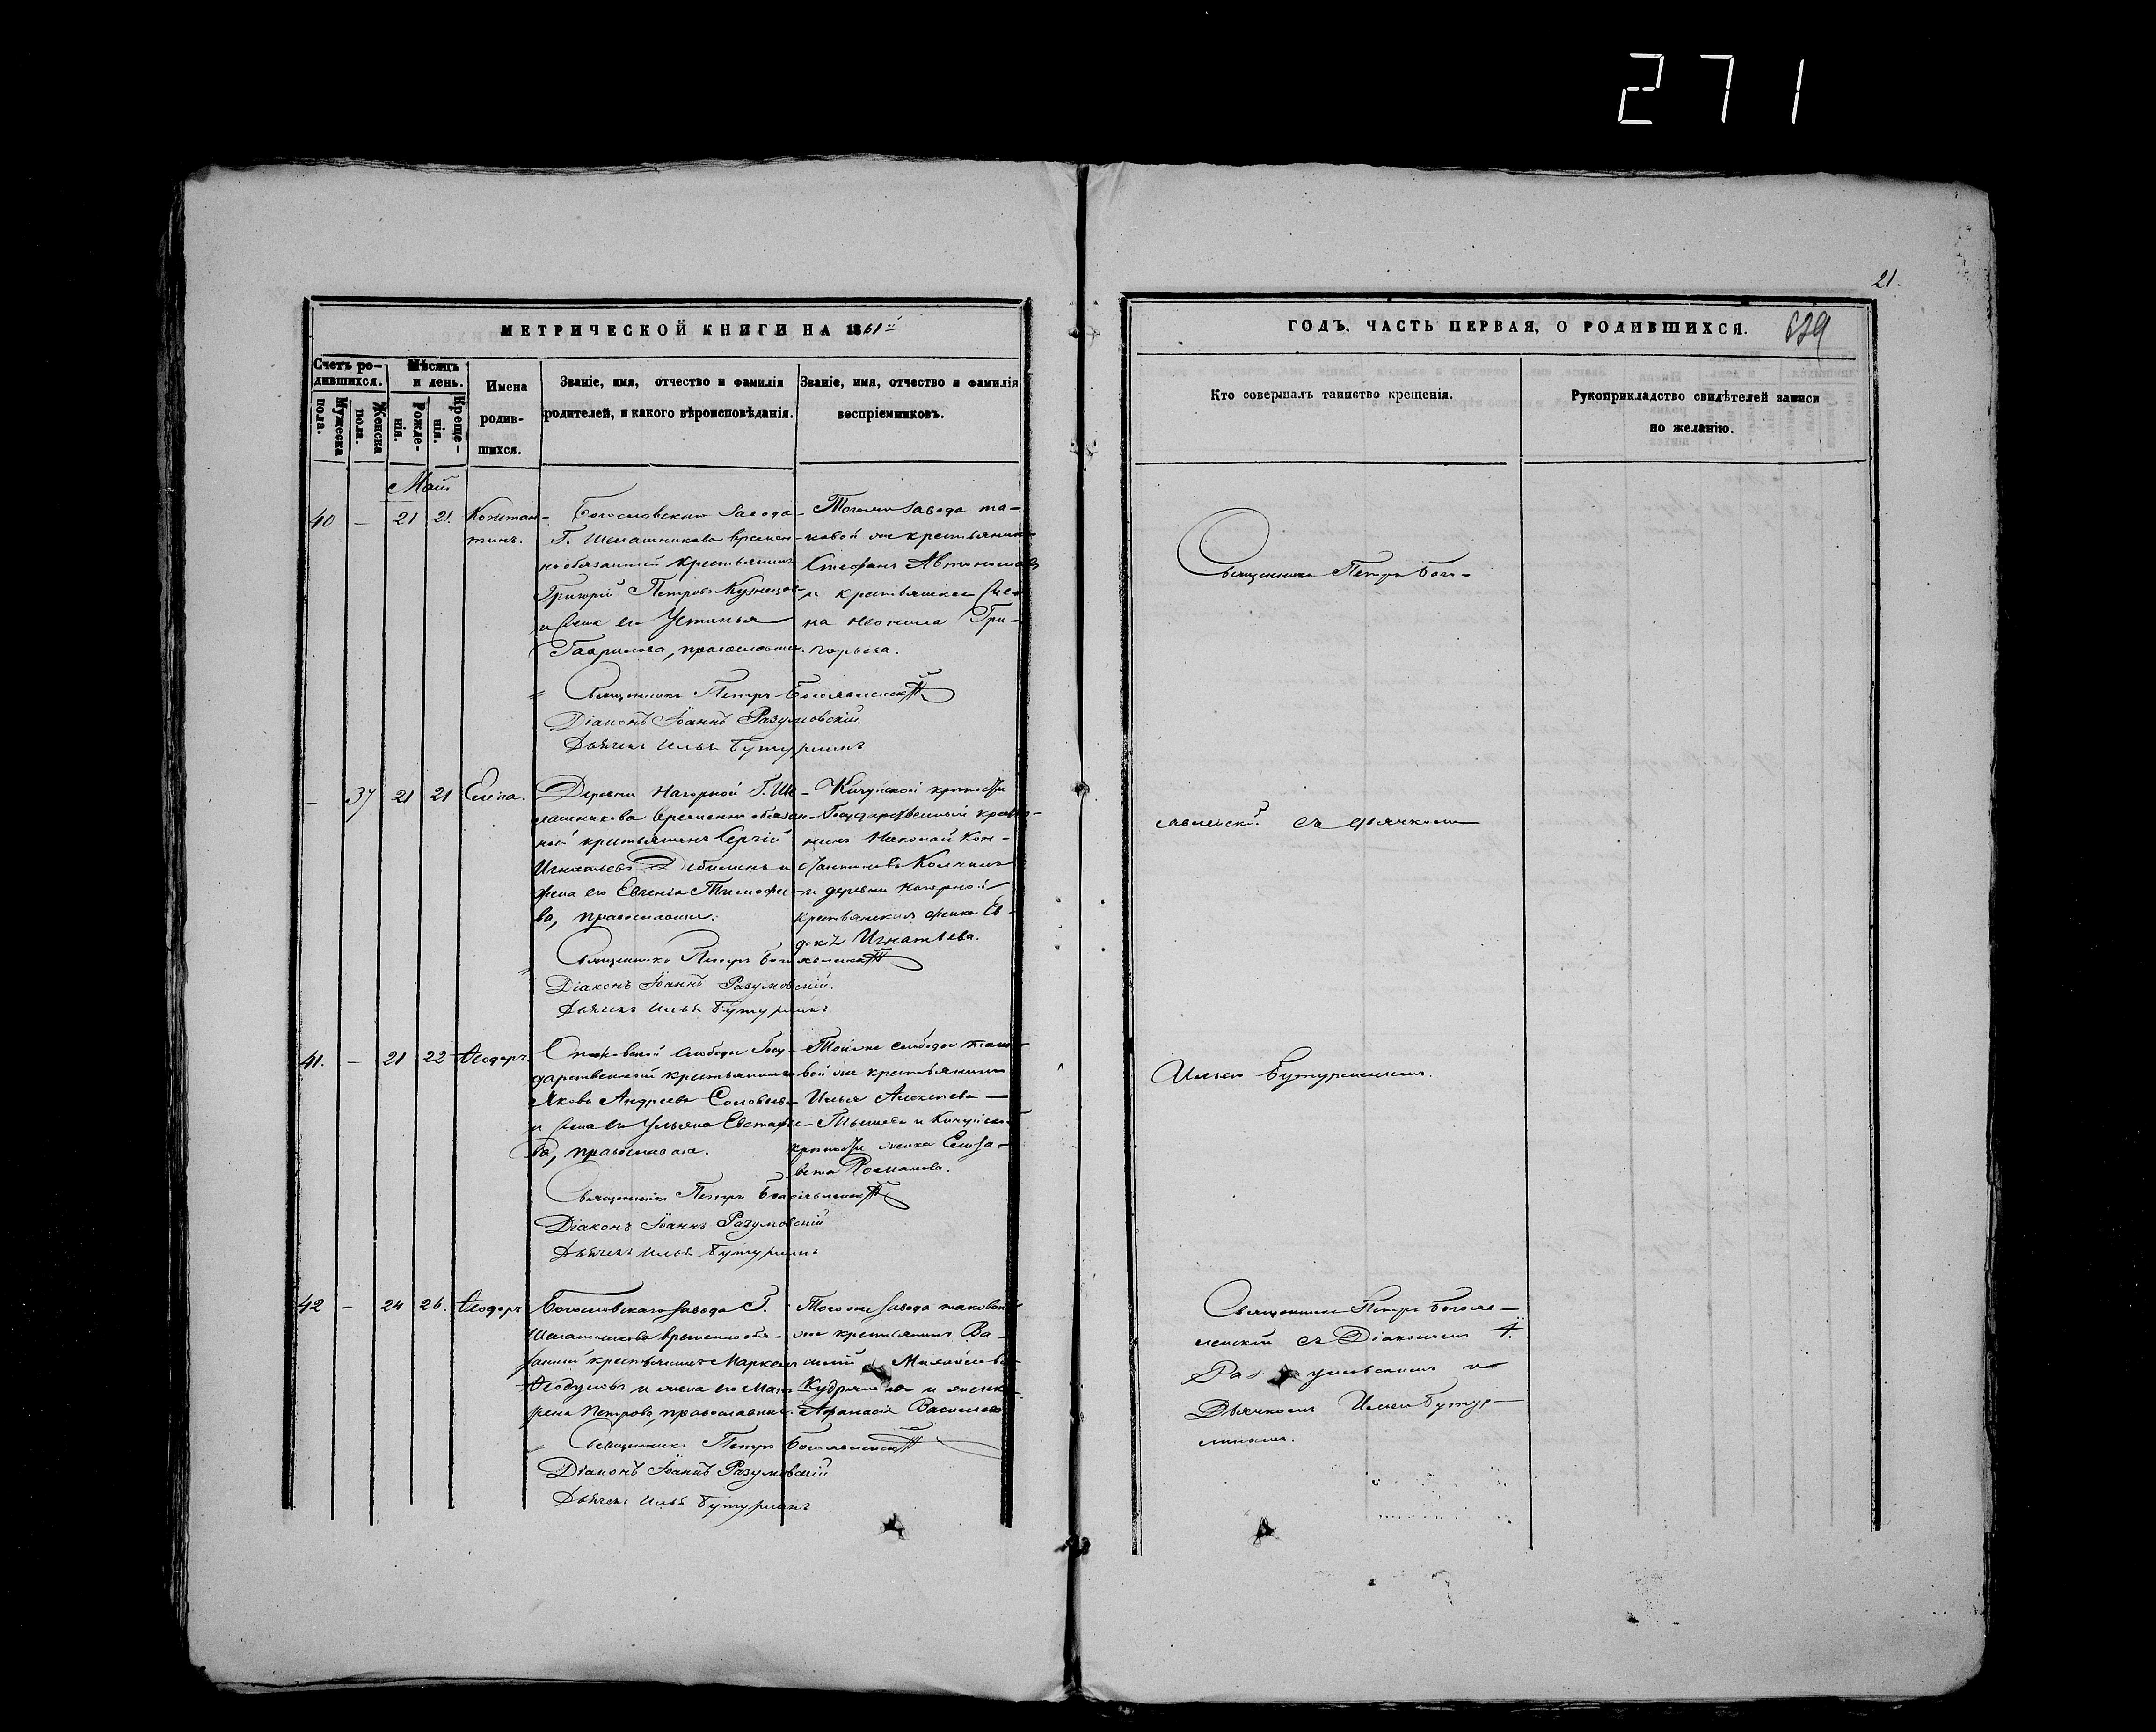 271
21.
МЕТРИЧЕСКОЙ КНИГИ НА 1861й
ГОДЪ. ЧАСТЬ ПЕРВАЯ, О РОДИВШИХСЯ.
Счетъ ро-
дившихся.
Мужеска
пола.
Женска
пола.
Мѣсяцъ
и день.
Рожде-
нія.
Креще-
нія.
Имена
родив-
шихся.
Званіе, имя, отчество и фамилія
родителей, и какого вѣроисповѣданія.
Званіе, имя, отчество и фамилія
воспріемниковъ.
Кто совершалъ таинство крещенія.
Рукоприкладство свидѣтелей записи
по желанію.
Май
40 – 21 21. Констан-
тинъ.
Богословскаго Завода
Г. Шелашникова времен-
нообязанный крестьянинъ
Григорій Петровъ Кузнецовъ
и жена его Устинья
Гаврилова, православные.
Тогоже завода та-
ковой же крестьянинъ
Стефанъ Автономовъ
и крестьянская
Гри-
горьева.
Священникъ Петръ Богоявленскій
Діаконъ Іоаннъ Разумовскій.
Дьячекъ Илья Бутурлинъ
– 37 21 21 Елена.
Деревни Нагорной Г. Ше-
лашникова временно обязан-
ной крестьянинъ Сергій
Игнатьевъ и
жена его Евгенія Тимофее-
ва, православные.
Кичуйской крѣпости
Государственный кресть-
нинъ Николай Кон-
стантиновъ
и деревни Нагорной
крестьянская женка Ев-
докія Игнатьева.
Священникъ Петръ Богоявленскій
Діаконъ Іоаннъ Разумовскій.
Дьячекъ Илья Бутурлинъ
41. – 21 22 Ѳеодоръ.
слободы Госу-
дарственный крестьянинъ
Яковъ Андреевъ Соловьевъ
и жена его Ульяна Евстафіе-
ва, православные.
Той же слободы тако-
вой же крестьянинъ
Илья Алексѣевъ
и Кичуйской
крѣпости женка Елиза-
вета Романова.
Священникъ Петръ Богоявленскій
Діаконъ Іоаннъ Разумовскій
Дьячекъ Илья Бутурлинъ
42 – 24 26. Ѳеодоръ
Богословскаго завода Г.
Шелашникова временнообя-
занный крестьянинъ Маркелъ
и жена его Мат-
рена Петрова, православные.
Того же завода таковой
же крестьянинъ Ва-
силій
и женка
Васильева
Священникъ Петръ Богоявленскій
Діаконъ Іоаннъ Разумовскій
Дьячекъ Илья Бутурлинъ
Священникъ Петръ Бого-
явленскій съ дьячкомъ
Ильею Бутурлинымъ.
Священникъ Петръ Богояв-
ленскій съ Діакономъ І.
Разумовскимъ и
Дьячкомъ Ильею Бутур-
линымъ.